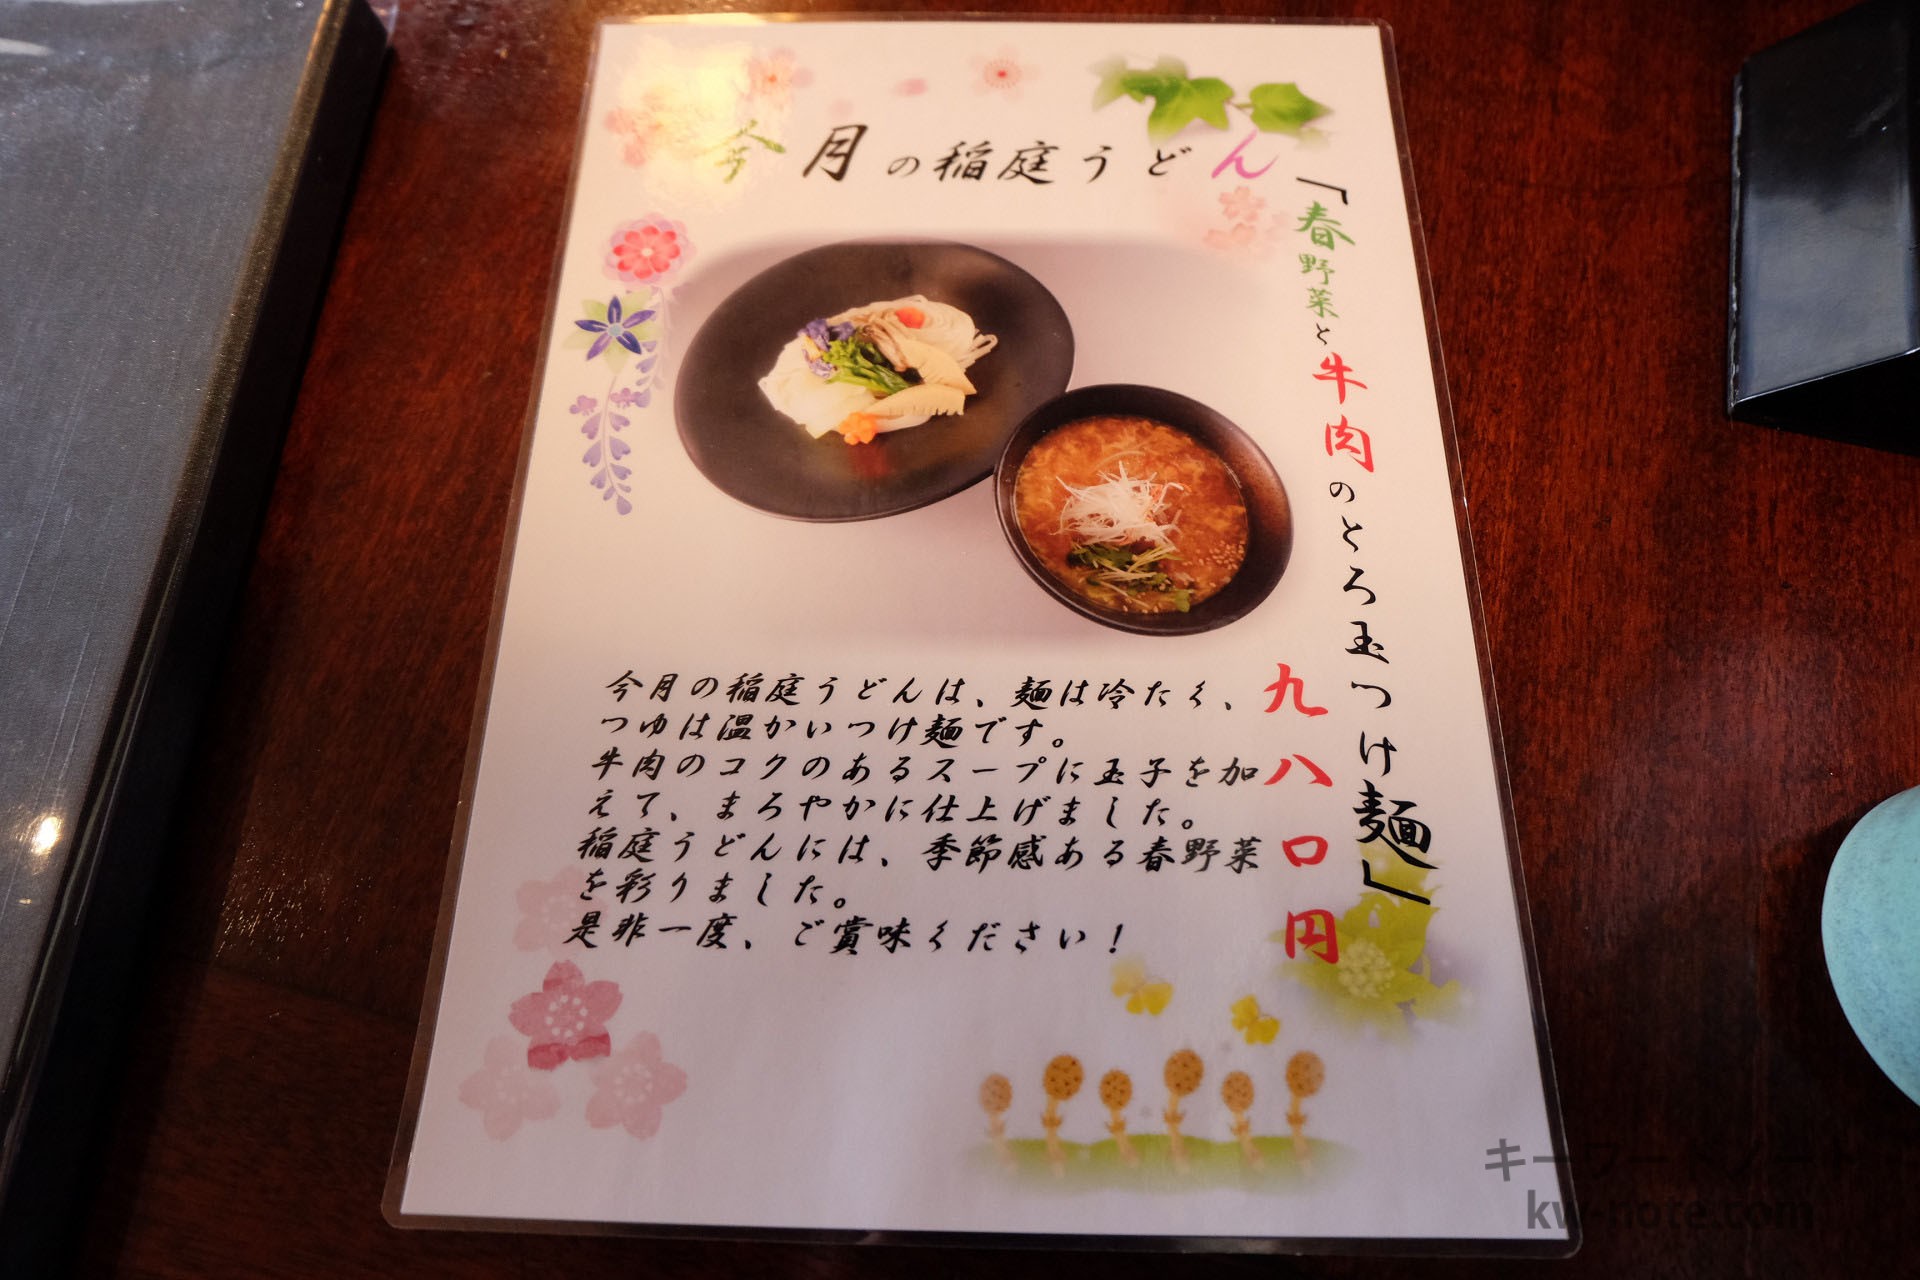 今月の稲庭うどん
「春野菜と牛肉のとろ玉つけ麺」
九八〇円
今月の稲庭うどんは、麺は冷たく、
つゆは温かいつけ麺です。
牛肉のコクのあるスープに玉子を加
えて、まろやかに仕上げました。
稲庭うどんには、季節感ある春野菜
を彩りました。
是非一度、ご賞味ください！
キーワードノート
kw-note.com